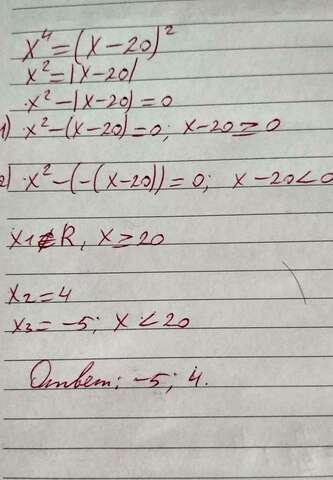 x⁴=(x-20)²
x²=|x-20|
x²-|x-20|=0
1) x²-(x-20)=0; x-20≥0
2) x²-(-(x-20))=0; x-20<0
x1∉R, x≥20
x2=4
x3=-5; x<20
Ответ: -5; 4.